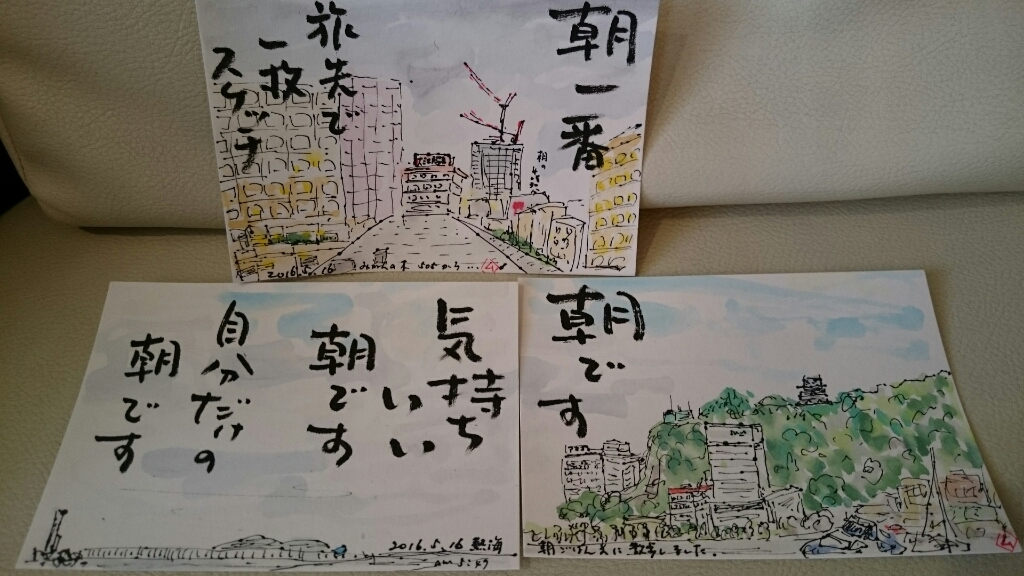 朝一番
旅先で
一枚
スケッチ
朝の
2016.5.16
505から...
気持ち
いい
朝です
自分だけの
朝です
2016.5.16 熱海
朝です
朝ごはん前に散歩しました。